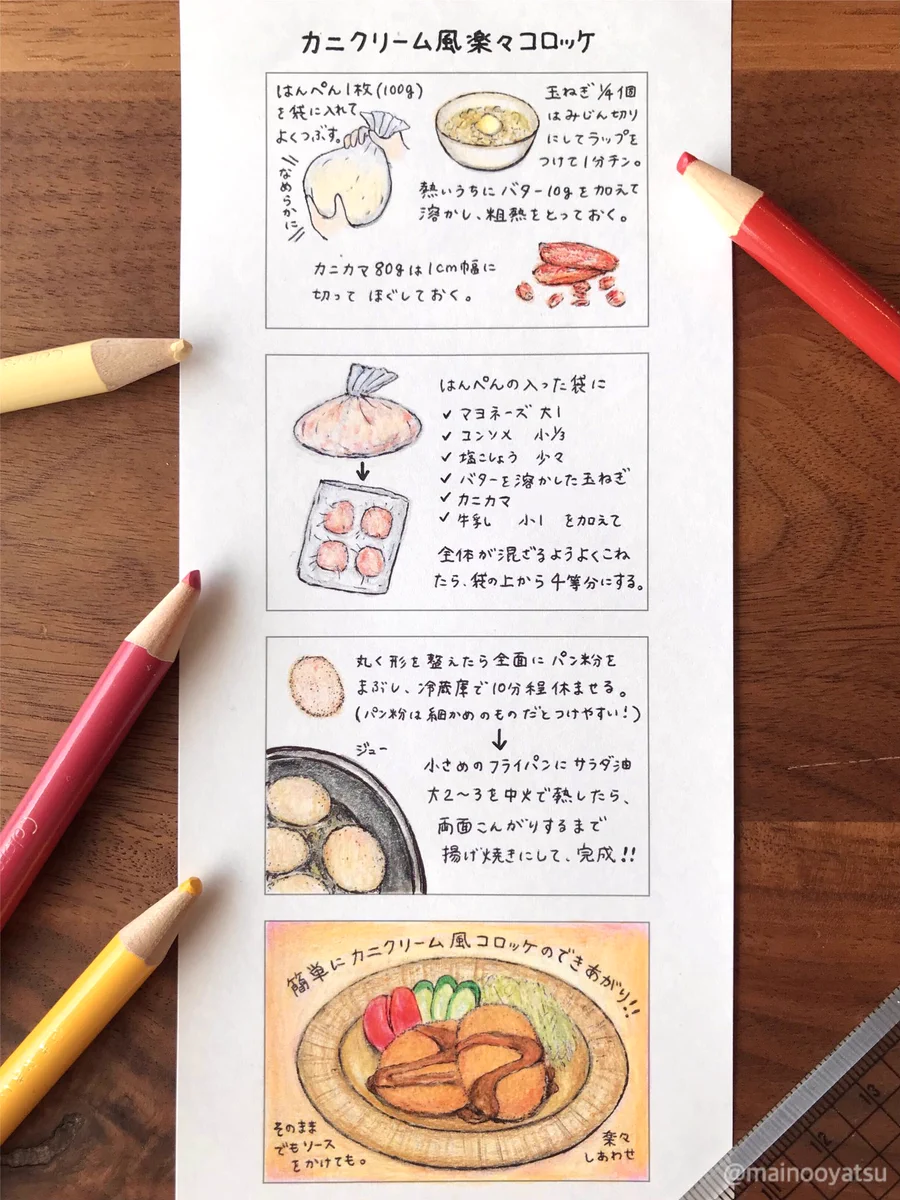 カニクリーム風楽々コロッケ
はんぺん1枚(100g)
を袋に入れて
よくつぶす。
なめらかに
玉ねぎ1/4個
はみじん切り
にしてラップを
つけて1分チン。
熱いうちにバター10gを加えて
溶かし、粗熱をとっておく。
カニカマ80gは1cm幅に
切ってほぐしておく。
はんぺんの入った袋に
✓マヨネーズ 大1
✓コンソメ 小1/3
✓塩こしょう 少々
✓バターを溶かした玉ねぎ
✓カニカマ
✓牛乳 小1 を加えて
全体が混ざるようよくこね
たら、袋の上から4等分にする。
丸く形を整えたら全面にパン粉を
まぶし、冷蔵庫で10分程休ませる。
(パン粉は細かめのものだとつけやすい!)
ジュー
小さめのフライパンにサラダ油
大2~3を中火で熱したら、
両面こんがりするまで
揚げ焼きにして、完成!!
簡単にカニクリーム風コロッケのできあがり!!
そのまま
でもソース
をかけても。
楽々
しあわせ
12
13
@mainooyatsu